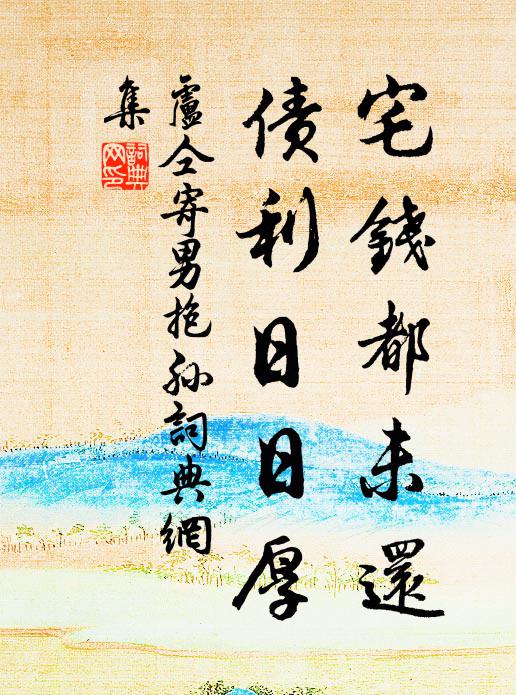 宅錢都未還
債利日日厚
盧仝寄男抱孫詞典網
集
詞典
网印